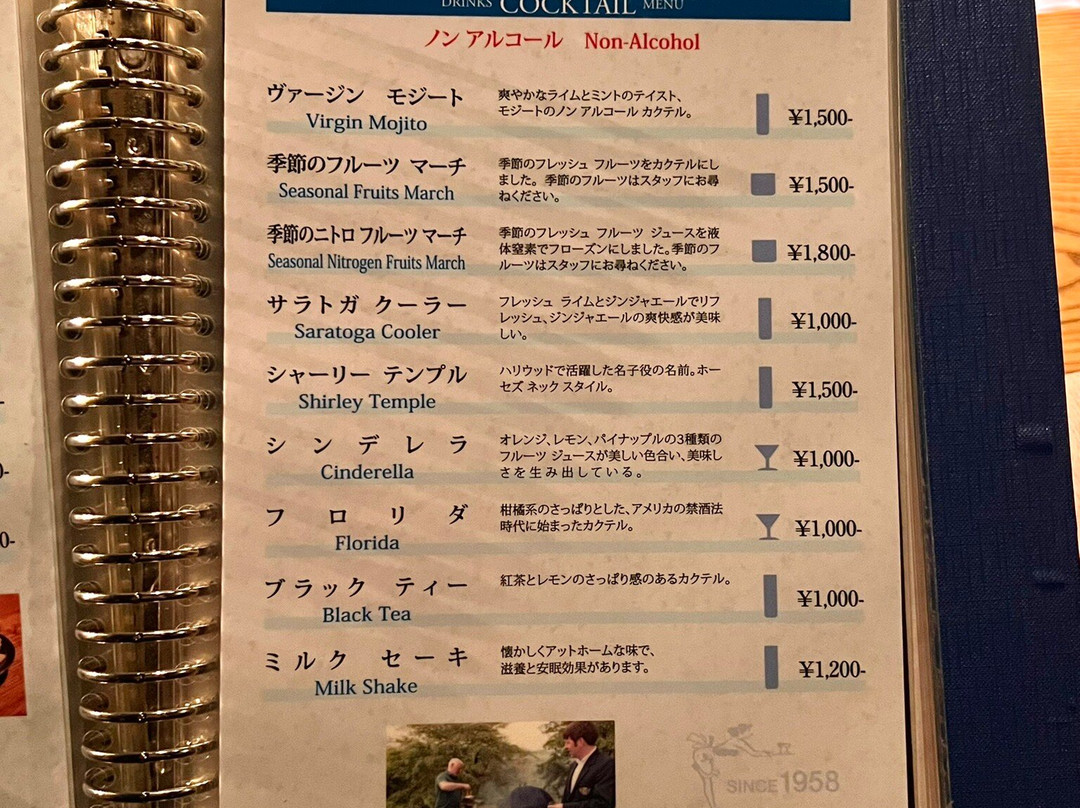 DRINKS COCKTAIL MENU
ノン アルコール Non-Alcohol
ヴァージン モジート
Virgin Mojito
爽やかなライムとミントのテイスト、
モジートのノン アルコール カクテル。
¥1,500-
季節のフルーツ マーチ
Seasonal Fruits March
季節のフレッシュ フルーツをカクテルにし
ました。季節のフルーツはスタッフにお尋
ねください。
¥1,500-
季節のニトロ フルーツ マーチ
Seasonal Nitrogen Fruits March
季節のフレッシュ フルーツ ジュースを液
体窒素でフローズンにしました。季節のフ
ルーツはスタッフにお尋ねください。
¥1,800-
サラトガ クーラー
Saratoga Cooler
フレッシュ ライムとジンジャエールでリフ
レッシュ、ジンジャエールの爽快感が美味
しい。
¥1,000-
シャーリー テンプル
Shirley Temple
ハリウッドで活躍した名子役の名前。ホー
セズ ネック スタイル。
¥1,500-
シンデレラ
Cinderella
オレンジ、レモン、パイナップルの3種類の
フルーツ ジュースが美しい色合い、美味し
さを生み出している。
¥1,000-
フロリダ
Florida
柑橘系のさっぱりとした、アメリカの禁酒法
時代に始まったカクテル。
¥1,000-
ブラック ティー
Black Tea
紅茶とレモンのさっぱり感のあるカクテル。
¥1,000-
ミルク セーキ
Milk Shake
懐かしくアットホームな味で、
滋養と安眠効果があります。
¥1,200-
SINCE 1958